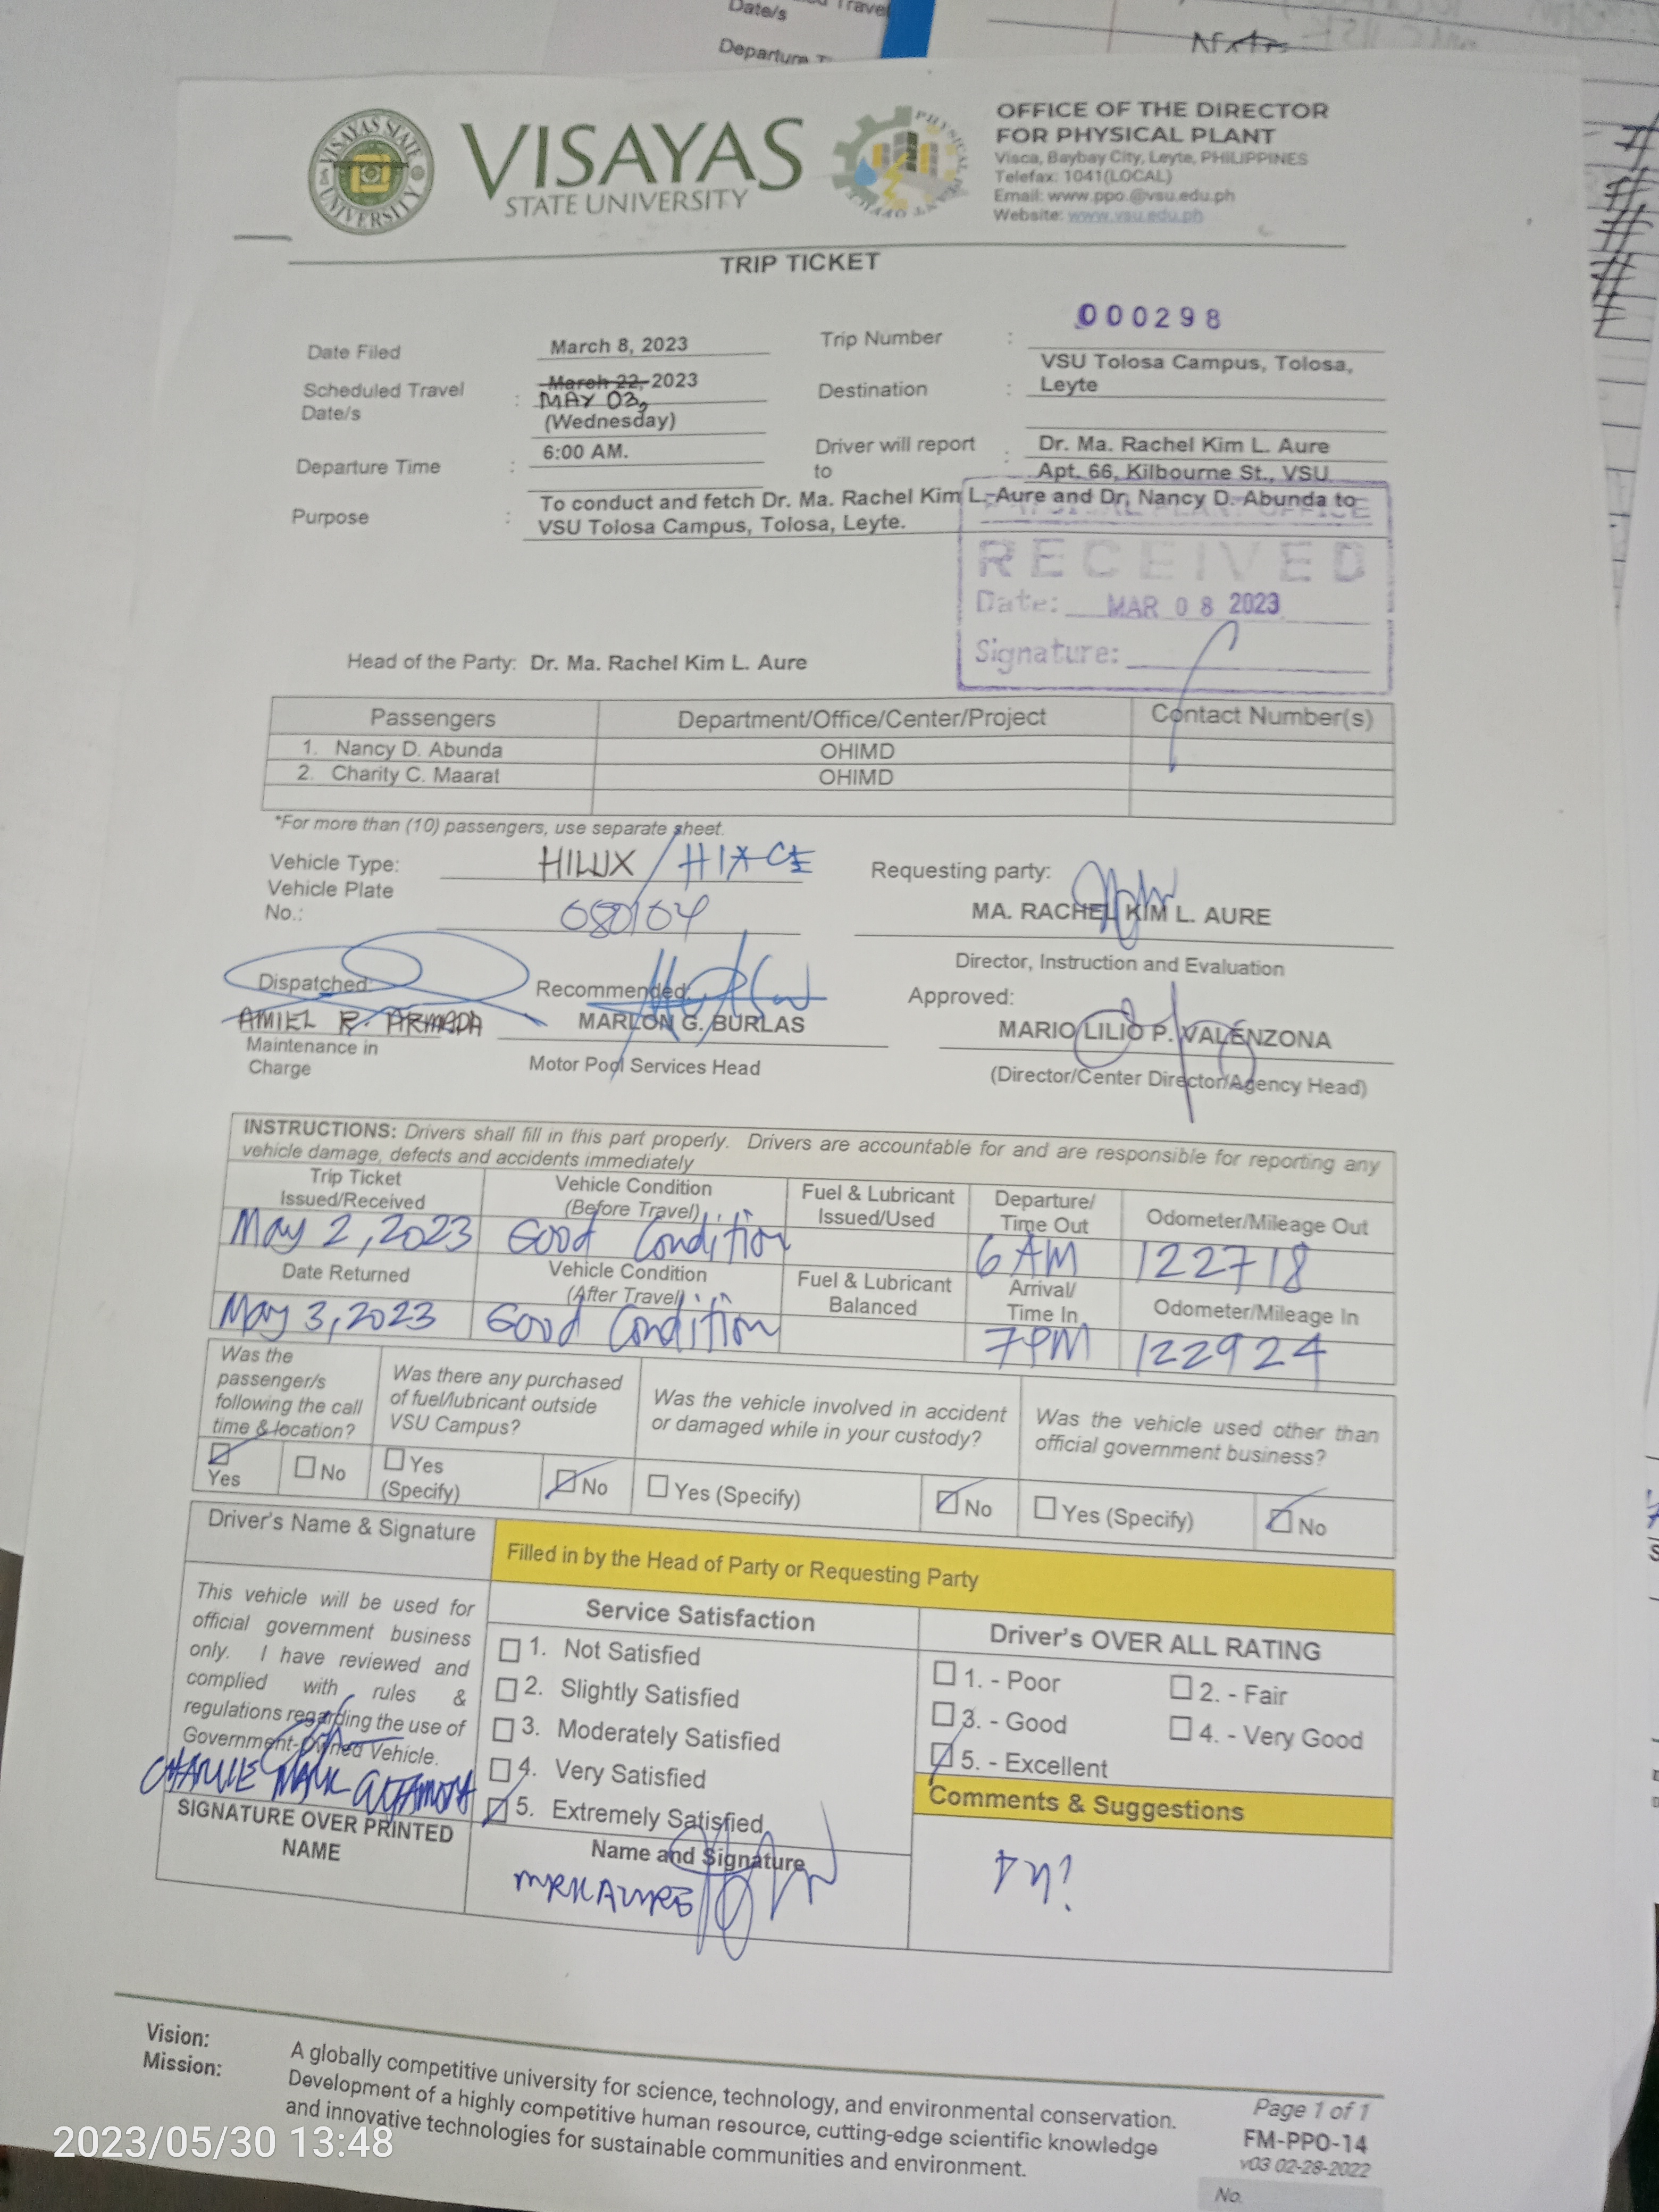 Date/s
Travel
Departure T
VISAYAS STATE UNIVERSITY
VISAYAS
STATE UNIVERSITY
OFFICE OF THE DIRECTOR
FOR PHYSICAL PLANT
Visca, Baybay City, Leyte, PHILIPPINES
Telefax: 1041(LOCAL)
Email: www.ppo.@vsu.edu.ph
Website: www.vsu.edu.ph
TRIP TICKET
Date Filed March 8, 2023
Trip Number : 000298
Scheduled Travel Date/s : March 22, 2023
MAY 03,
(Wednesday)
Destination : VSU Tolosa Campus, Tolosa,
Leyte
Departure Time : 6:00 AM.
Driver will report to : Dr. Ma. Rachel Kim L. Aure
Apt. 66, Kilbourne St., VSU
Purpose : To conduct and fetch Dr. Ma. Rachel Kim L. Aure and Dr. Nancy D. Abunda to
VSU Tolosa Campus, Tolosa, Leyte.
PHYSICAL PLANT OFFICE
RECEIVED
Date: MAR 08 2023
Signature:
Head of the Party: Dr. Ma. Rachel Kim L. Aure
Passengers Department/Office/Center/Project Contact Number(s)
1. Nancy D. Abunda OHIMD
2. Charity C. Maarat OHIMD
*For more than (10) passengers, use separate sheet.
Vehicle Type: HILUX / HIACE
Vehicle Plate
No.: 080104
Requesting party:
MA. RACHEL KIM L. AURE
Director, Instruction and Evaluation
Dispatched:
AMIEL R. ARMADA
Maintenance in
Charge
Recommended:
MARLON G. BURLAS
Motor Pool Services Head
Approved:
MARIO LILIO P. VALENZONA
(Director/Center Director/Agency Head)
INSTRUCTIONS: Drivers shall fill in this part properly. Drivers are accountable for and are responsible for reporting any
vehicle damage, defects and accidents immediately
Trip Ticket Issued/Received
Vehicle Condition (Before Travel)
Fuel & Lubricant Issued/Used
Departure/ Time Out
Odometer/Mileage Out
May 2, 2023 Good Condition 6 AM 122718
Date Returned
Vehicle Condition (After Travel)
Fuel & Lubricant Balanced
Arrival/ Time In
Odometer/Mileage In
May 3, 2023 Good Condition 7PM 122924
Was the
passenger/s
following the call
time & location?
Yes
No
Was there any purchased
of fuel/lubricant outside
VSU Campus?
Yes
(Specify)
No
Was the vehicle involved in accident
or damaged while in your custody?
Yes (Specify)
No
Was the vehicle used other than
official government business?
Yes (Specify)
No
Driver's Name & Signature
Filled in by the Head of Party or Requesting Party
This vehicle will be used for
official government business
only. I have reviewed and
complied with rules &
regulations regarding the use of
Government-Owned Vehicle.
CHARLIE MARK
SIGNATURE OVER PRINTED
NAME
Service Satisfaction
1. Not Satisfied
2. Slightly Satisfied
3. Moderately Satisfied
4. Very Satisfied
5. Extremely Satisfied
Name and Signature
MRKAURE
Driver's OVER ALL RATING
1. - Poor
2. - Fair
3. - Good
4. - Very Good
5. - Excellent
Comments & Suggestions
Vision: A globally competitive university for science, technology, and environmental conservation.
Mission: Development of a highly competitive human resource, cutting-edge scientific knowledge
and innovative technologies for sustainable communities and environment.
Page 1 of 1
FM-PPO-14
v03 02-28-2022
No.
2023/05/30 13:48